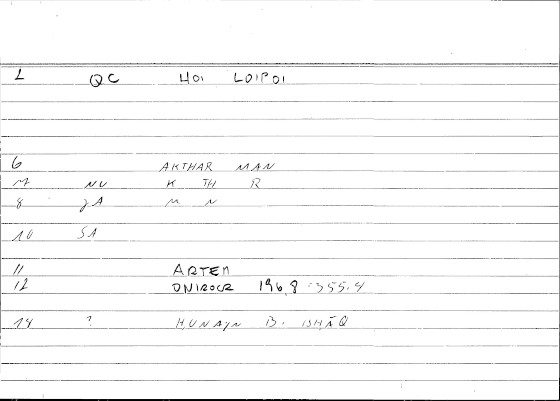 L QC HOI LOIPOI
6 AKTHAR MAN
7 NU K TH R
8 JA M N
10 SA
11 ARTEM
12 ONIROCR 196,8 - 355.4
14 ? HUNAYN B. ISHĀQ